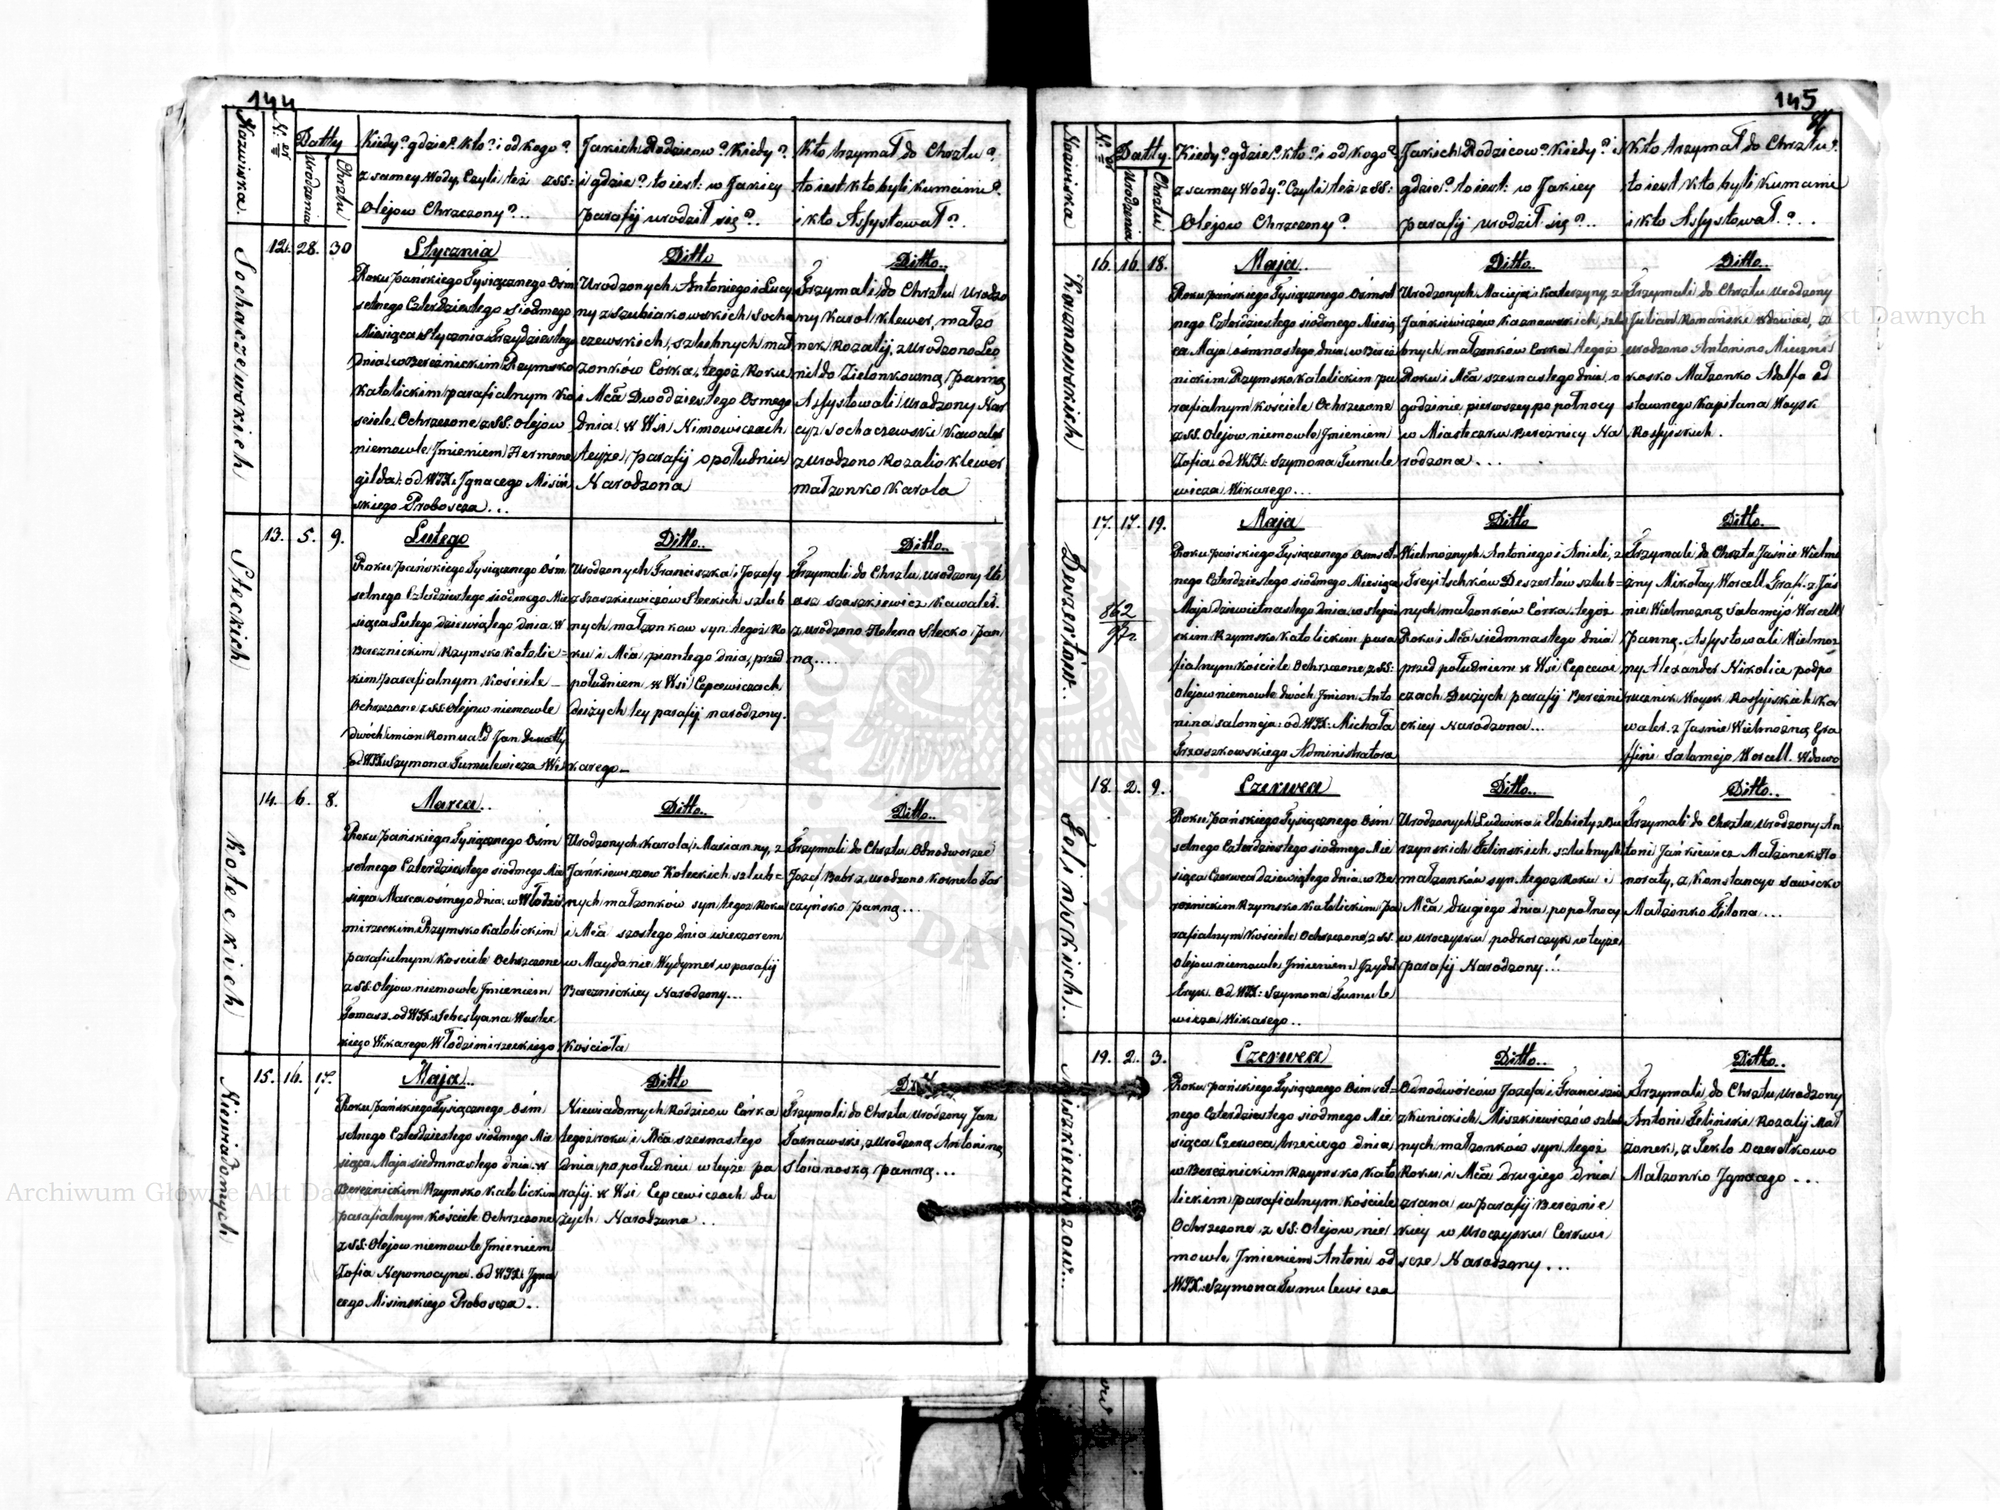 144
Nazwiska
N: er
Datty
Urodzenia
Chrztu
Kiedy? gdzie? kto? i od kogo?
z samey Wody, Czyli też z SS:
Olejow Chrzczony?...
Jakich Rodzicow? Kiedy?
i gdzie? to iest: w Jakiey
parafij urodził się?..
Kto trzymał do Chrztu?
to iest kto byli Kumami?
i kto Assystował?
Sochaczewskich
12. 28. 30
Stycznia
Roku Pańskiego Tysiącznego Ośm
setnego Czterdziestego siodmego
Miesiąca Stycznia Trzydziestego
dnia w Bereźnickim Rzymsko
Katolickim parafialnym Ko
sciele Ochrzczone z SS. Olejow
niemowle Jmieniem Hermene
gilda: od WJX: Jgnacego Misiń
skiego Proboszcza...
Ditto
Urodzonych Antoniego i Lucy
ny z Szubiakowskich Socha
czewskich, szlubnych mał
żonków Córka, tegoż Roku
i Mca Dwodziestego Osmego
dnia w Wsi Nimowiczach
teyże parafij o południu
Narodzona
Ditto..
Trzymali do Chrztu Urodzo
ny Karol Klewer, małżo
nek Rozalij, z Urodzono Leo
nildo Zielonkowną Panną
Assystowali Urodzony Nar
cyz Sochaczewski Kawaler
z Urodzono Rozalio Klewer
małżonko Karola
Steckich
13. 5. 9.
Lutego
Roku Pańskiego Tysiącznego Ośm
setnego Czterdziestego siodmego Mie
siąca Lutego dziewiątego dnia w
Bereznickim Rzymsko Katolic=
kim parafialnym Kościele
Ochrzczone z SS. Olejow niemowle
dwóch imion Romuald Jan
od WJX: Szymona Tumulewicza Wi
karego
Ditto..
Urodzonych Franciszka i Jozefy
z Szaszkiewiczow Steckich szlub
nych małżonkow syn tegoż Ro
ku i Mca piontego dnia, przed
południem w Wsi Cepcewiczach
dużych tey parafij narodzony.
Ditto..
Trzymali do Chrztu, urodzony Eli
asz Szaszkiewicz Kawaler.
z urodzono Heleno Stecko pan
ną....
Koteckich
14. 6. 8.
Marca..
Roku Pańskiego Tysiącznego Ośm
setnego Czterdziestego siodmego Mie
siąca Marca osmego dnia w Włodzi
mirzeckim Rzymsko Katolickim
parafialnym Kosciele Ochrzczone
z SS. Olejow niemowle Jmieniem
Tomasz od WJX: Sebestyana
kiego Wikarego Włodzimirzeckiego
Kościoła
Ditto..
Urodzonych Karola i Marianny, z
Jańkiewiczow Koteckich szlub=
nych małżonków syn tegoż Roku
i Mca szostego dnia wieczorem
w Maydanie Wydymer w parafij
Bereznickiey Narodzony...
Ditto..
Trzymali do Chrztu Odnodworzec
Jozef Bobr z Urodzono Kornelo Tar
czyńsko panną...
Niewiadomych
15. 16. 17.
Maja..
Roku Pańskiego Tysiącznego Ośm
setnego Czterdziestego siodmego Mie
siąca Maja siedmnastego dnia w
Bereznickim Rzymsko Katolickim
parafialnym Kosciele Ochrzczone
z SS. Olejow niemowle Jmieniem
Zofia Nepomocyna. od WJX: Jgna
cego Misinskiego Proboszcza..
Ditto
Niewiadomych Rodzicow Córka
tegoż roku i Mca szesnastego
dnia, po południu w teyże pa
rafij w Wsi Cepcewiczach Du
żych Narodzona...
Trzymali do Chrztu Urodzony Jan
Tarnawski, z Urodzoną Antoniną
Stoianoską panną...
145
Nazwiska
N: er
Datty.
Urodzenia
Chrztu
Kiedy? gdzie? kto? i od kogo?
z samey Wody? Czyli też z SS:
Olejow Chrzczony?
Jakich Rodzicow? Kiedy? i
gdzie? to iest: w Jakiey
parafij urodził się?..
Kto trzymał do Chrztu?
to iest Kto byli Kumami
i kto Assystował?...
Koznowskich
16. 16. 18.
Maja..
Roku Pańskiego Tysiącznego Ośmset
nego Czterdziestego siodmego Miesią
ca Maja osmnastego dnia w Berez
nickim Rzymsko Katolickim pa
rafialnym Kościele Ochrzczone
z SS. Olejow niemowle Jmieniem
Zofia: od WJX: Szymona Tumule
wicza Wikarego...
Ditto..
Urodzonych Macieja i Katerzyny z
Jańkiewiczów Koznowskich, szlu
bnych małżonków Córka tegoż
Roku i Mca szesnastego dnia, o
godzinie pierwszey po połnocy
w Miasteczku Bereźnicy Na
rodzona...
Ditto..
Trzymali do Chrztu Urodzony
Julian Romański Wdowiec, z
urodzono Antonino Miezni
kosko Małżonko Adolfa od
stawnego Kapitana Woysk
Rossyiskich.
Deszertów..
17. 17. 19.
Maja
Roku Pańskiego Tysiącznego Osmset
nego Czterdziestego siodmego Miesiąca
Maja dziewietnastego dnia, w
skim Rzymsko Katolickim para
fialnym Kościele Ochrzczone z SS:
Olejow niemowle dwóch Jmion Anto
nina Salomeja: od WJX: Michała
Traszkowskiego Administratora
Ditto
Wielmożnych Antoniego i Anieli, z
Freyitschków Deszertów szlub=
nych małżonków Córka tegoż
Roku i Mca siedmnastego dnia
przed południem w Wsi Cepcewi
czach Dużych parafij Berezni
ckiey Narodzona...
Ditto..
Trzymali do Chrztu Jaśnie Wielmo
żny Mikołay Worcell Graf: z Jaś
nie Wielmożną Salomejo Worcell
Panną. Assystowali Wielmoż
ny Alexander Nikolicz podpo
rucznik Woysk Rossyiskich Ka
waler. z Jaśnie Wielmożną Gra
ffini Salomejo Worcell. Wdowo
Felińskich...
18. 2. 9.
Czerwca
Roku Pańskiego Tysiącznego Ośm
setnego Czterdziestego siodmego Mie
siąca Czerwca dziewiątego dnia w Be
reznickim Rzymsko Katolickim pa
rafialnym Kościele Ochrzczone, z SS.
Olejow niemowle Jmieniem Jzydor
Eryk. od WJX: Szymona Tumule
wicza Wikarego..
Ditto..
Urodzonych Ludwika i Elzbiety z Bu
rzynskich Felinskich, szlubnych
małżonków syn. tegoż Roku i
Mca drugiego dnia, po połnocy
w uroczysku podkorczyk w teyże
parafij Narodzony...
Ditto..
Trzymali do Chrztu Urodzony An
toni Jańkiewicz Małżonek Ho
noraty, z Konstancyo Sawicko
Małżonko Filona...
Miszkiewiczow...
19. 2. 3.
Czerwca
Roku Pańskiego Tysiącznego Ośmset=
nego Czterdziestego siodmego Mie
siąca Czerwca trzeciego dnia
w Bereznickim Rzymsko Kato
lickim parafialnym Kościele
Ochrzczone z SS. Olejow nie
mowle Jmieniem Antoni od
WJX: Szymona Tumulewicza
Ditto..
Odnodwórcow Jozefa i Franciszki
z Kunickich Miszkiewiczów szlub
nych małżonków syn. tegoż
Roku i Mca drugiego dnia
zrana w parafij Berezni c
kiey w Uroczysku Cerkwi
scze Narodzony...
Ditto..
Trzymali do Chrztu Urodzony
Antoni Feliński Rozalij Mał
żonek, z Teklo Dzerotkowo
Małżonko Jgnacego...
Archiwum Główne Akt Dawnych